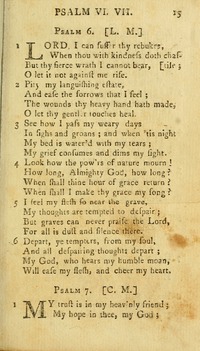 PSALM VI. VII. 15
PSALM 6. [L. M.]
1 LORD, I can suffer thy rebukes,
When thou with kindness doth chas-
But thy fierce wrath I cannot bear, [tise;
O let it not against me rise.
2 Pity my languishing estate,
And ease the sorrows that I feel;
The wounds thy heavy hand hath made,
O let thy gentler touches heal.
3 See how I pass my weary days
In sighs and groans; and when 'tis night
My bed is water'd with my tears;
My grief consumes and dims my sight.
4 Look how the pow'rs of nature mourn!
How long, Almighty God, how long?
When shall thine hour of grace return?
When shall I make thy grace my song?
5 I feel my flesh so near the grave,
My thoughts are tempted to despair;
But graves can never praise the Lord,
For all is dust and silence there.
6 Depart, ye tempters, from my soul,
And all despairing thoughts depart;
My God, who hears my humble moan,
Will ease my flesh, and cheer my heart.
PSALM 7. [C. M.]
1 MY trust is in my heav'nly friend;
My hope in thee, my God;